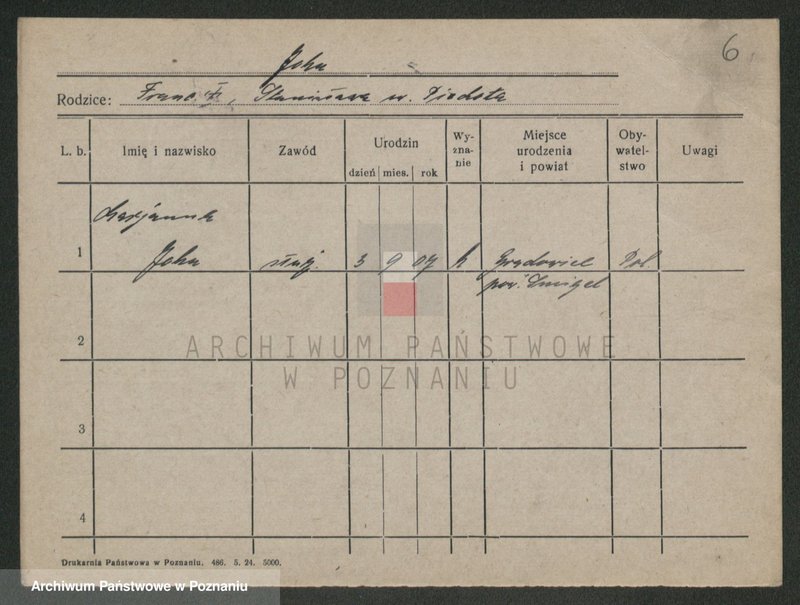 6
Joka
Rodzice: Franc. i, Stanisława ur. Piosota
L. b. Imię i nazwisko Zawód Urodzin dzień mies. rok Wy-zna-nie Miejsce urodzenia i powiat Oby-watel-stwo Uwagi
Marjanna
1 Joka służ. 3 9 07 k Pol.
pow. Śmigel
2
ARCHIWUM PAŃSTWOWE
W POZNANIU
3
4
Drukarnia Państwowa w Poznaniu. 486. 5. 24. 5000.
Archiwum Państwowe w Poznaniu